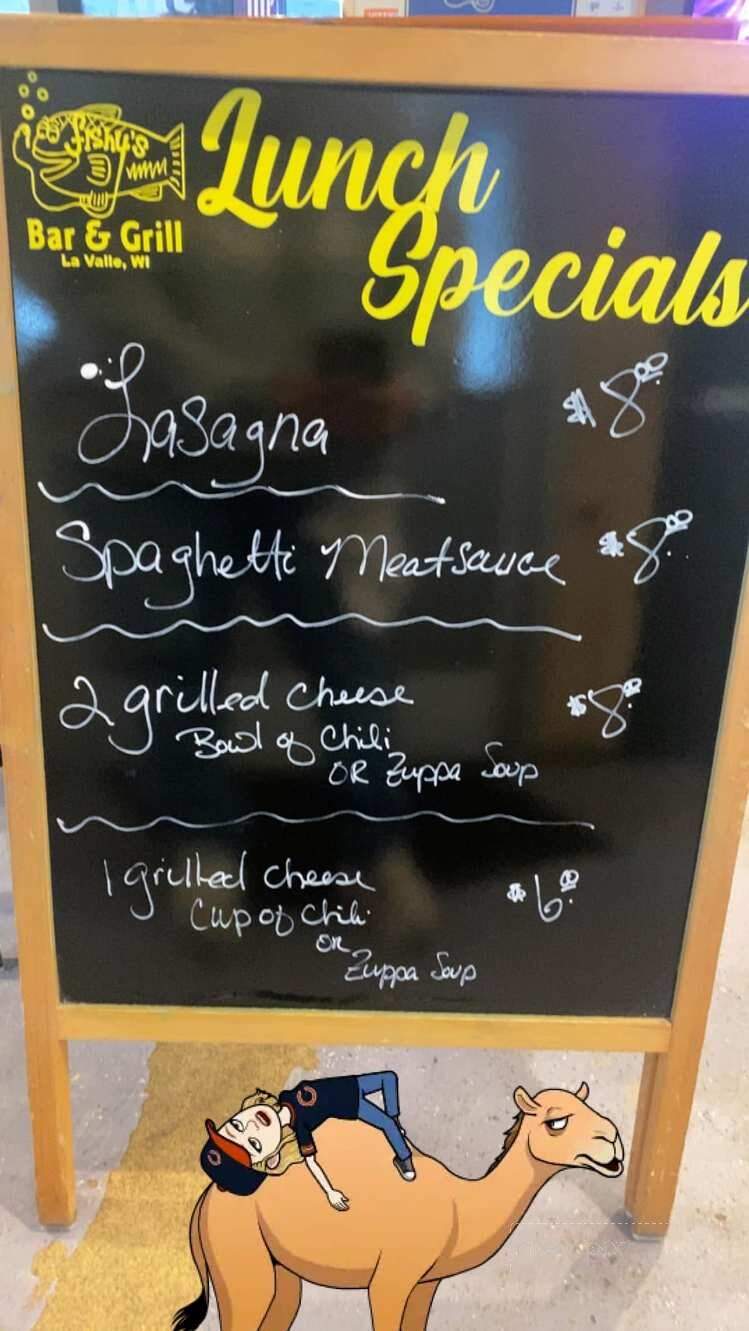 fishy's
Bar & Grill
La Valle, WI
Lunch
Specials
Lasagna $8.00
Spaghetti Meatsauce $8.00
2 grilled cheese $8.00
Bowl of Chili
OR Zuppa Soup
1 grilled cheese $6.00
Cup of Chili
OR
Zuppa Soup